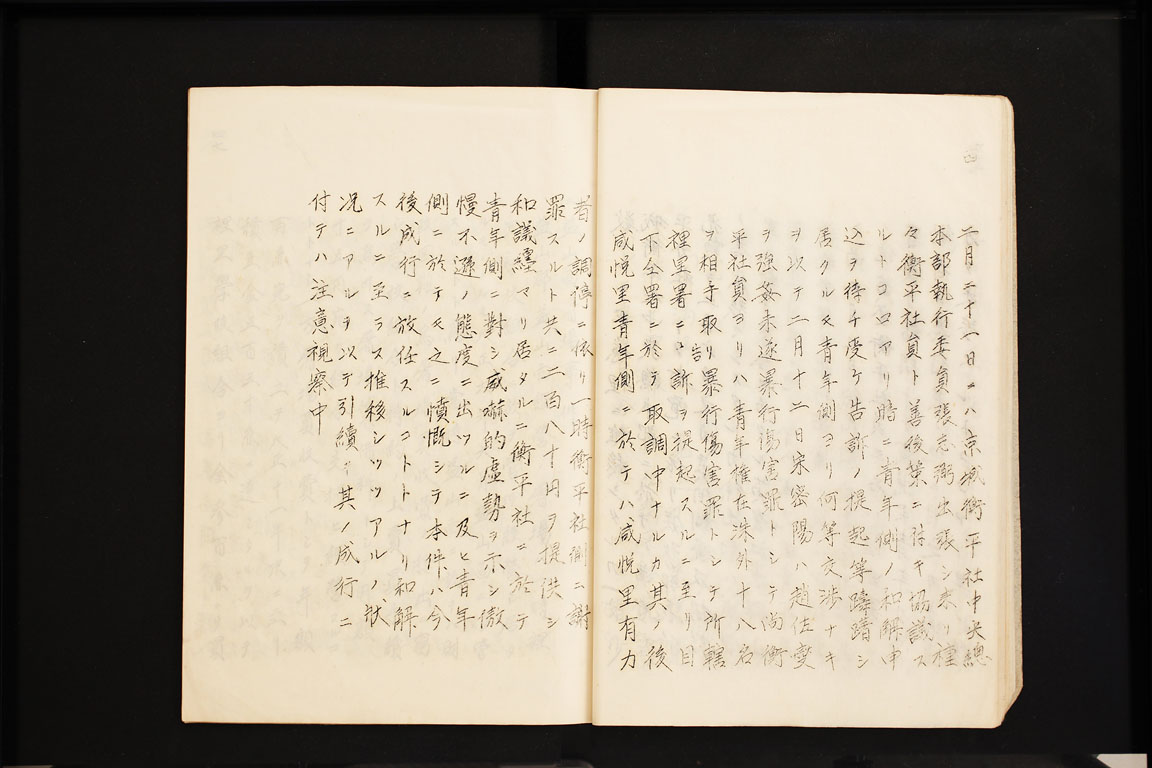 二月二十一日ニハ京城衡平社中央總
本部執行委員張志弼出張シ来リ種
々衡平社員ト善後策ニ付キ協議ス
ルトコロアリ時ニ青年側ノ和解申
込ヲ待チ受ケ告訴ノ提起等躊躇シ
居タルモ青年側ヨリ何等交渉ナキ
ヲ以テ二月十二日宋密陽ハ趙佐變
ヲ強姦未遂暴行傷害罪トシテ尚衡
平社員ヨリハ青年権在洙外十八名
ヲ相手取リ暴行傷害罪トシテ所轄
裡里署ニ告訴ヲ提起スルニ至リ目
下仝署ニ於テ取調中ナルカ其ノ後
咸悦里青年側ニ於テハ咸悦里有力
者ノ調停ニ依リ一時衡平社側ニ謝
罪スルト共ニ二百八十円ヲ提供シ
和議纏マリ居タルニ衡平社ニ於テ
青年側ニ對シ威嚇的虚勢ヲ示シ傲
慢不遜ノ態度ニ出ツルニ及ヒ青年
側ニ於テモ之ニ憤慨シテ本件ハ今
後成行ニ放任スルコトトナリ和解
スルニ至ラス推移シツツアルノ状
況ニアルヲ以テ引續キ其ノ成行ニ
付テハ注意視察中